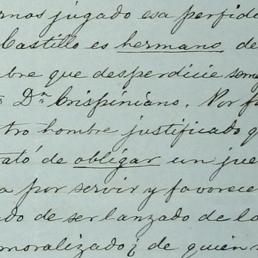 rnos jugado esa perfidi
Castillo es hermano de
bre que desperdicie some
s Dn. Crispiniano. Por f
tro hombre justificado q
ató de obligar un jue
a por servir y favorece
do de ser lanzado de la
moralizado ¿ de quién